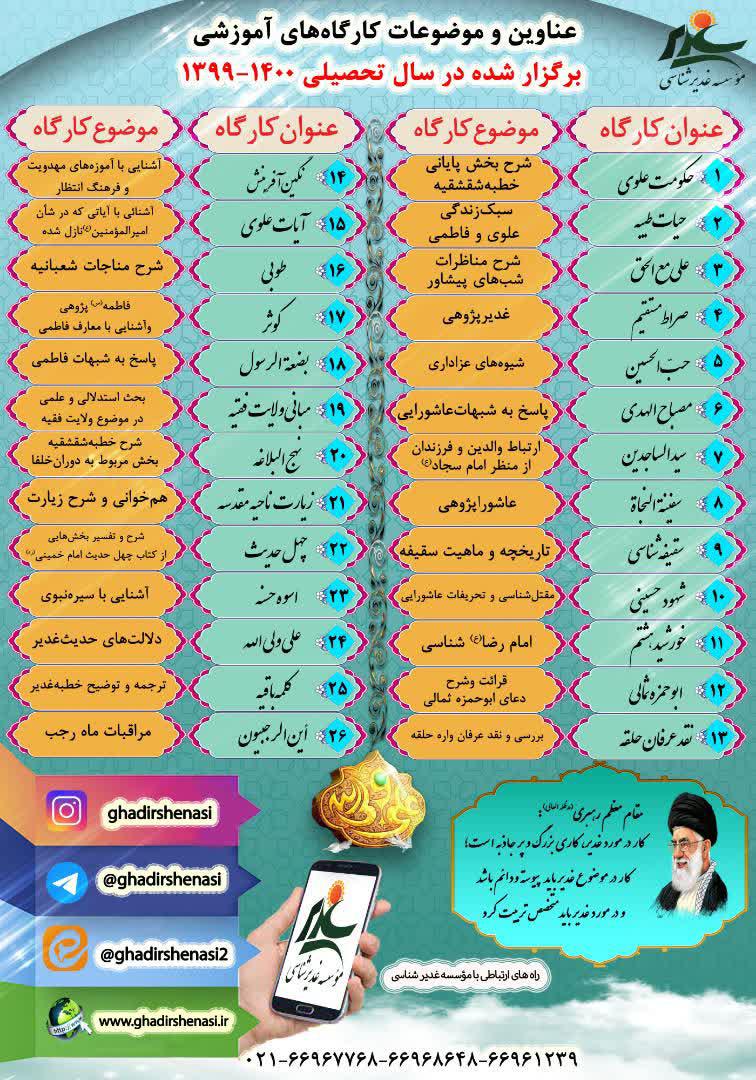 عناوین و موضوعات کارگاه‌های آموزشی
برگزار شده در سال تحصیلی ۱۴۰۰-۱۳۹۹
غدیر
مؤسسه غدیرشناسی
عنوان کارگاه
موضوع کارگاه
۱ حکومت علوی
شرح بخش پایانی
خطبه شقشقیه
۲ حیات طیبه
سبک‌زندگی
علوی و فاطمی
۳ علی مع الحق
شرح مناظرات
شب‌های پیشاور
۴ صراط مستقیم
غدیرپژوهی
۵ حبّ الحسین
شیوه‌های عزاداری
۶ مصباح الهدی
پاسخ به شبهات عاشورایی
۷ سید الساجدین
ارتباط والدین و فرزندان
از منظر امام سجاد(ع)
۸ سفینة النجاة
عاشوراپژوهی
۹ سقیفه شناسی
تاریخچه و ماهیت سقیفه
۱۰ شهود حسینی
مقتل‌شناسی و تحریفات عاشورایی
۱۱ خورشید هشتم
امام رضا(ع) شناسی
۱۲ ابوحمزه ثمالی
قرائت وشرح
دعای ابوحمزه ثمالی
۱۳ نقد عرفان حلقه
بررسی و نقد عرفان واره حلقه
عنوان کارگاه
موضوع کارگاه
۱۴ نگین آفرینش
آشنایی با آموزه‌های مهدویت
و فرهنگ انتظار
۱۵ آیات علوی
آشنائی با آیاتی که در شأن
امیرالمؤمنین(ع)نازل شده
۱۶ طوبی
شرح مناجات شعبانیه
۱۷ کوثر
فاطمه(س) پژوهی
وآشنایی با معارف فاطمی
۱۸ بضعة الرسول
پاسخ به شبهات فاطمی
۱۹ مبانی ولایت فقیه
بحث استدلالی و علمی
در موضوع ولایت فقیه
۲۰ نهج البلاغه
شرح خطبه‌شقشقیه
بخش مربوط به دوران‌خلفا
۲۱ زیارت ناحیه مقدسه
هم‌خوانی و شرح زیارت
۲۲ چهل حدیث
شرح و تفسیر بخش‌هایی
از کتاب چهل حدیث امام خمینی(ره)
۲۳ اسوه حسنه
آشنایی با سیره‌نبوی
۲۴ علی ولی الله
دلالت‌های حدیث‌غدیر
۲۵ کلمه باقیه
ترجمه و توضیح خطبه‌غدیر
۲۶ أین الرجبیون
مراقبات ماه رجب
مقام معظم رهبری(مدظله العالی):
کار در مورد غدیر، کاری بزرگ و پر جاذبه است؛
کار در موضوع غدیر باید پیوسته و دائم باشد
و در مورد غدیر باید متخصص تربیت کرد
ghadirshenasi
@ghadirshenasi
@ghadirshenasi2
http://www
www.ghadirshenasi.ir
غدیر
مؤسسه غدیرشناسی
راه های ارتباطی با مؤسسه غدیر شناسی
۰۲۱-۶۶۹۶۷۷۶۸-۶۶۹۶۸۶۴۸-۶۶۹۶۱۲۳۹